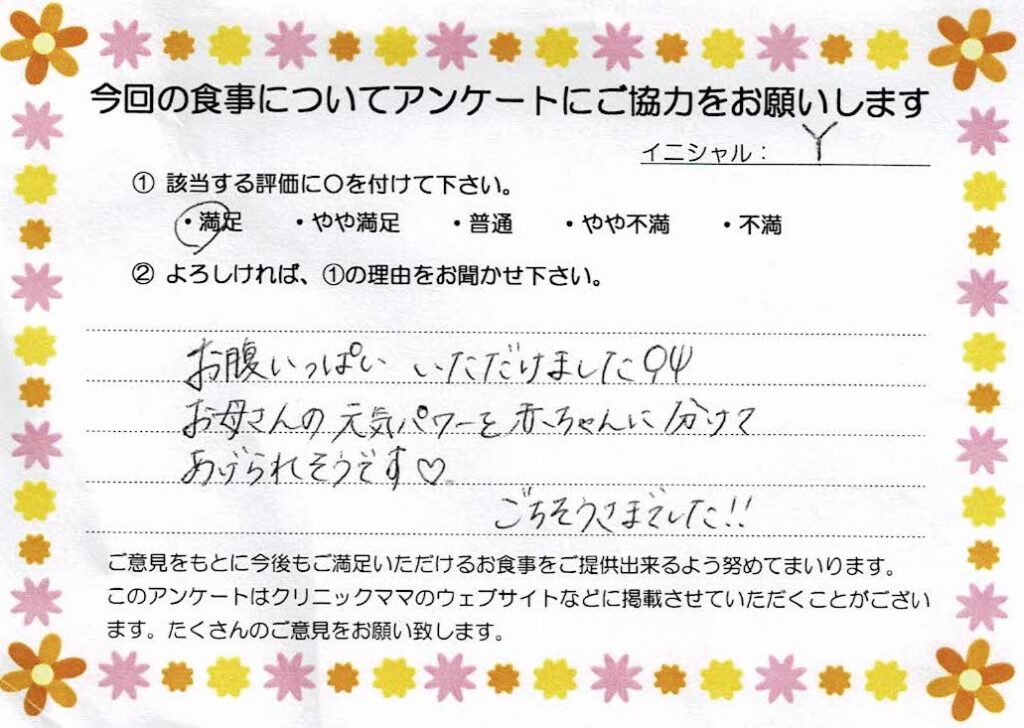 今回の食事についてアンケートにご協力をお願いします
イニシャル: Y
① 該当する評価に〇を付けて下さい。
・満足 ・やや満足 ・普通 ・やや不満 ・不満
② よろしければ、①の理由をお聞かせ下さい。
お腹いっぱい いただけました
お母さんの元気パワーを赤ちゃんに分けて
あげられそうです♡
ごちそうさまでした!!
ご意見をもとに今後もご満足いただけるお食事をご提供出来るよう努めてまいります。
このアンケートはクリニックママのウェブサイトなどに掲載させていただくことがござい
ます。たくさんのご意見をお願い致します。